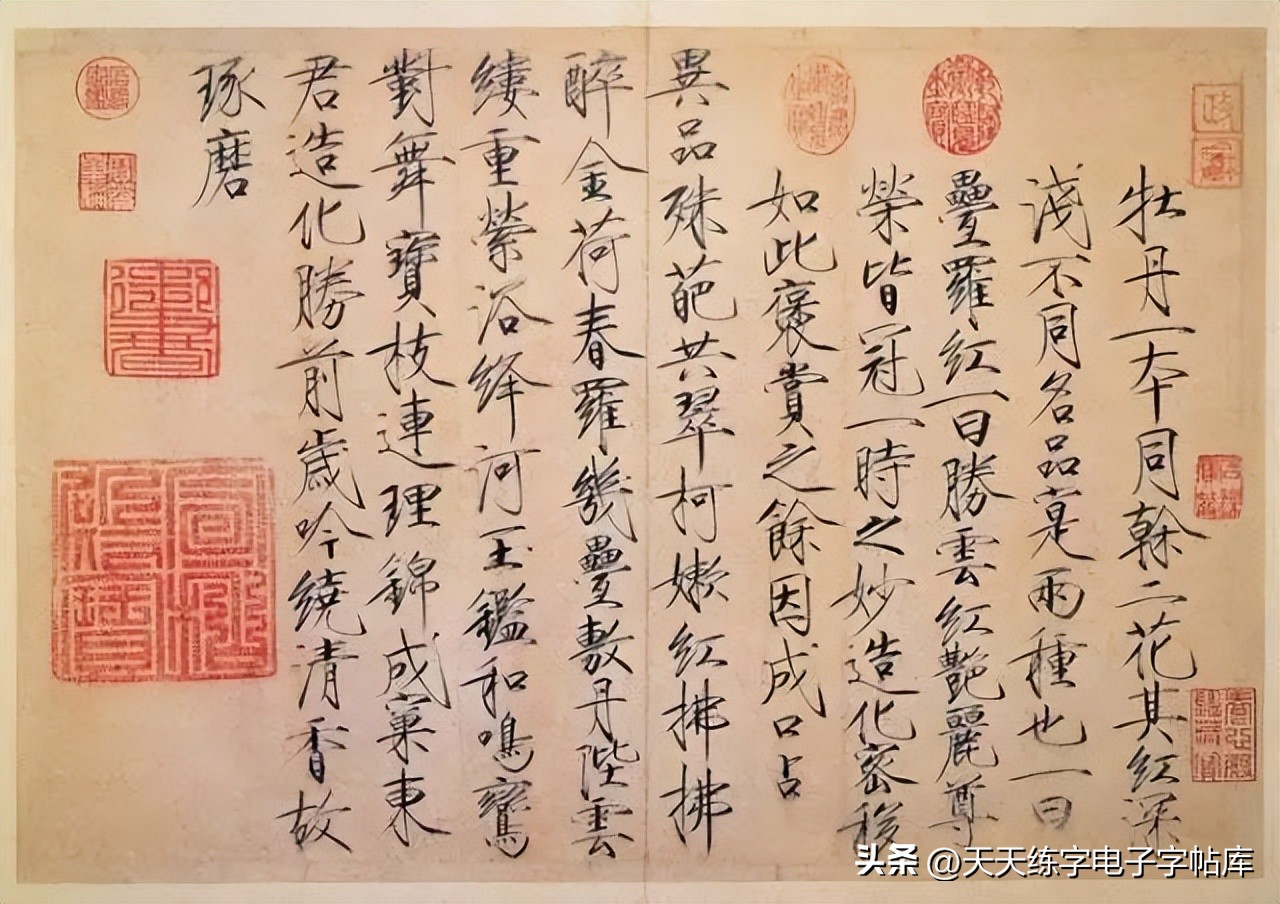 牡丹一本同榦二花其紅深
淺不同名品寔兩種也一曰
疊羅紅一曰勝雲紅艷麗尊
榮皆冠一時之妙造化密移
如此褒賞之餘因成口占
異品殊葩共翠柯嫩紅拂拂
醉金荷春羅幾疊敷丹陛雲
縷重縈浴絳河玉鑑和鳴鸞
對舞寶枝連理錦成窠東
君造化勝前歲吟繞清香故
琢磨
头条 @天天练字电子字帖库